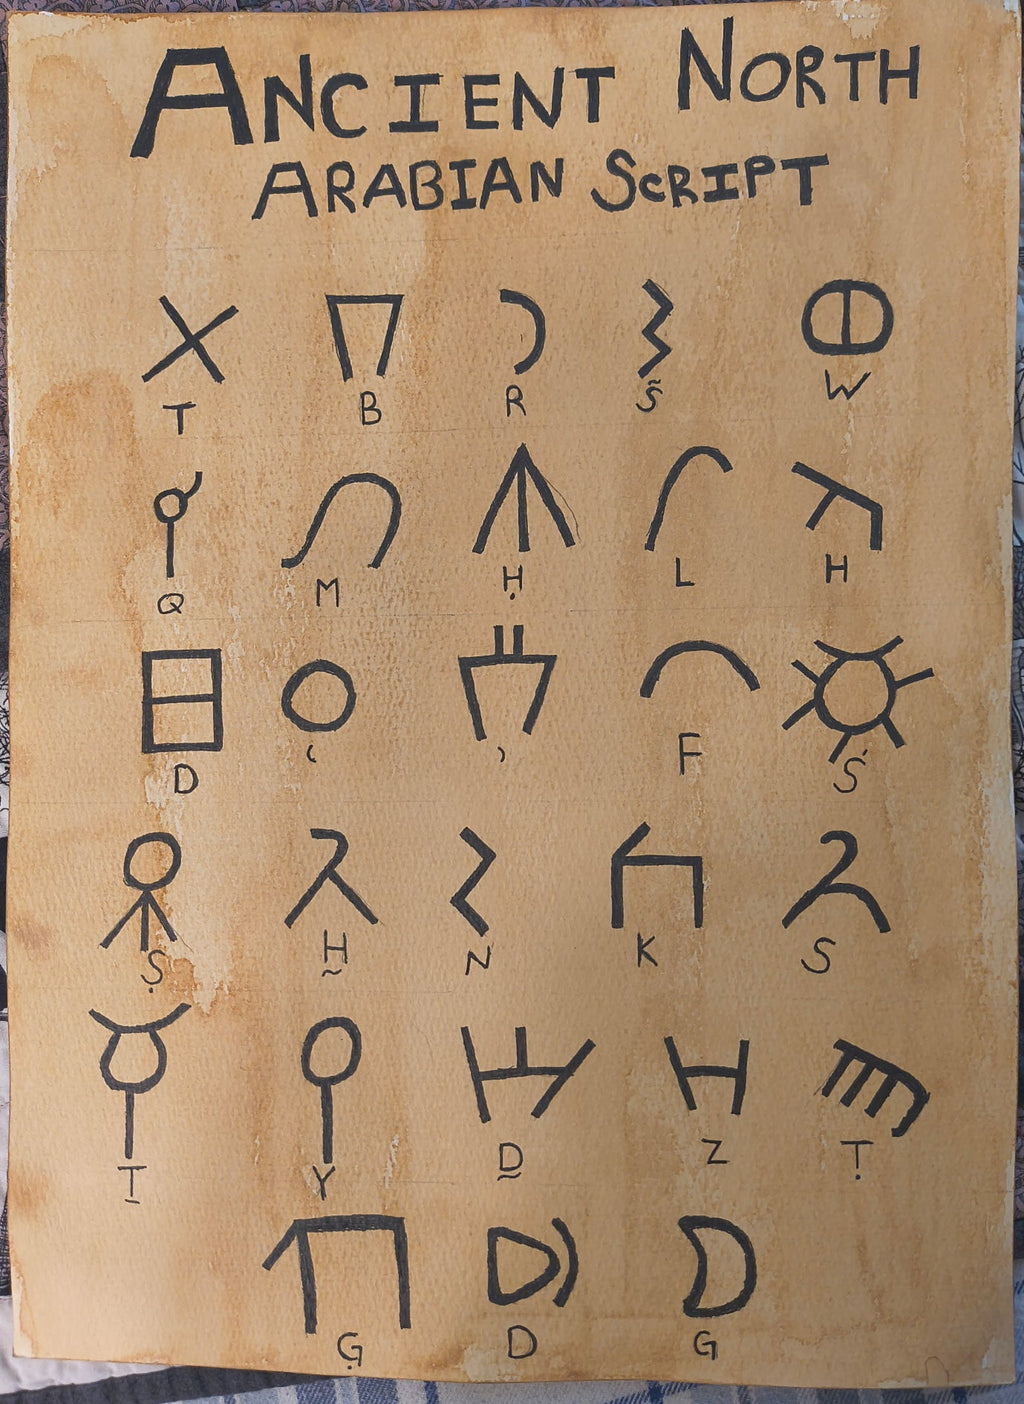 ANCIENT NORTH
ARABIAN SCRIPT
T B R S̃ W
Q M Ḥ L H
D ʿ ʾ F Ś
Ṣ H̰ N K S
T̲ Y D̲ Z Ṭ
G̣ D G